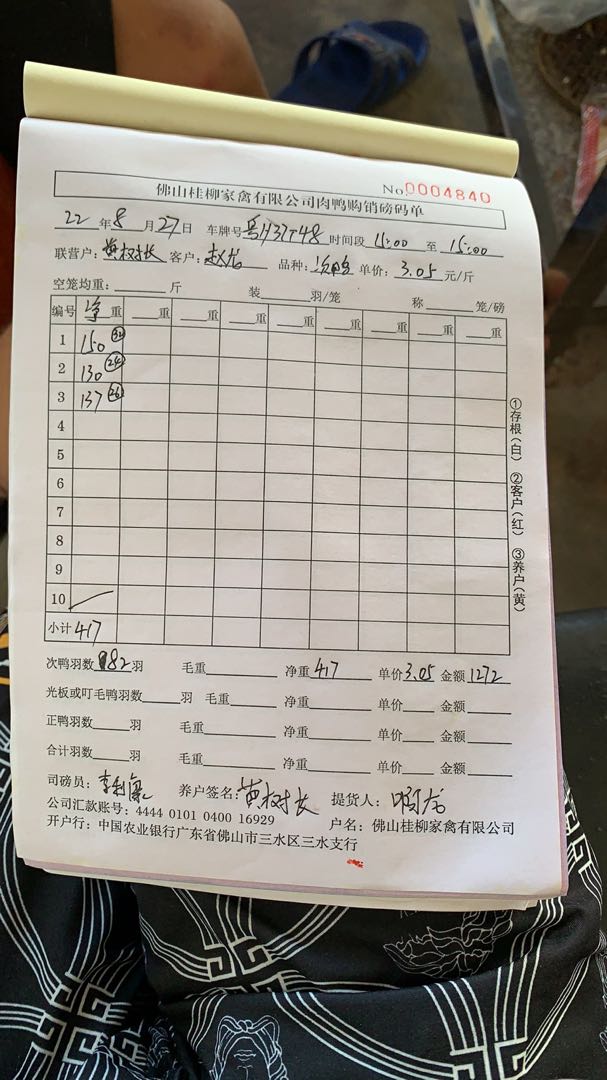 佛山桂柳家禽有限公司肉鸭购销磅码单 No.0004840
22年8月27日 车牌号 粤H37T48 时间段 11:00 至 15:00
联营户: 黄树长 客户: 赵龙 品种: 次鸭 单价: 3.05 元/斤
空笼均重: 斤 装 羽/笼 称 笼/磅
编号 净重 重 重 重 重 重 重 重 重
1 150 32
2 130 24
3 137 26
4
5
6
7
8
9
10
小计 417
①存根(白) ②客户(红) ③养户(黄)
次鸭羽数 82羽 毛重 净重 417 单价 3.05 金额 1272
光板或叮毛鸭羽数 羽 毛重 净重 单价 金额
正鸭羽数 羽 毛重 净重 单价 金额
合计羽数 羽 毛重 净重 单价 金额
司磅员: 养户签名: 黄树长 提货人:
公司汇款账号: 4444 0101 0400 16929 户名: 佛山桂柳家禽有限公司
开户行: 中国农业银行广东省佛山市三水区三水支行